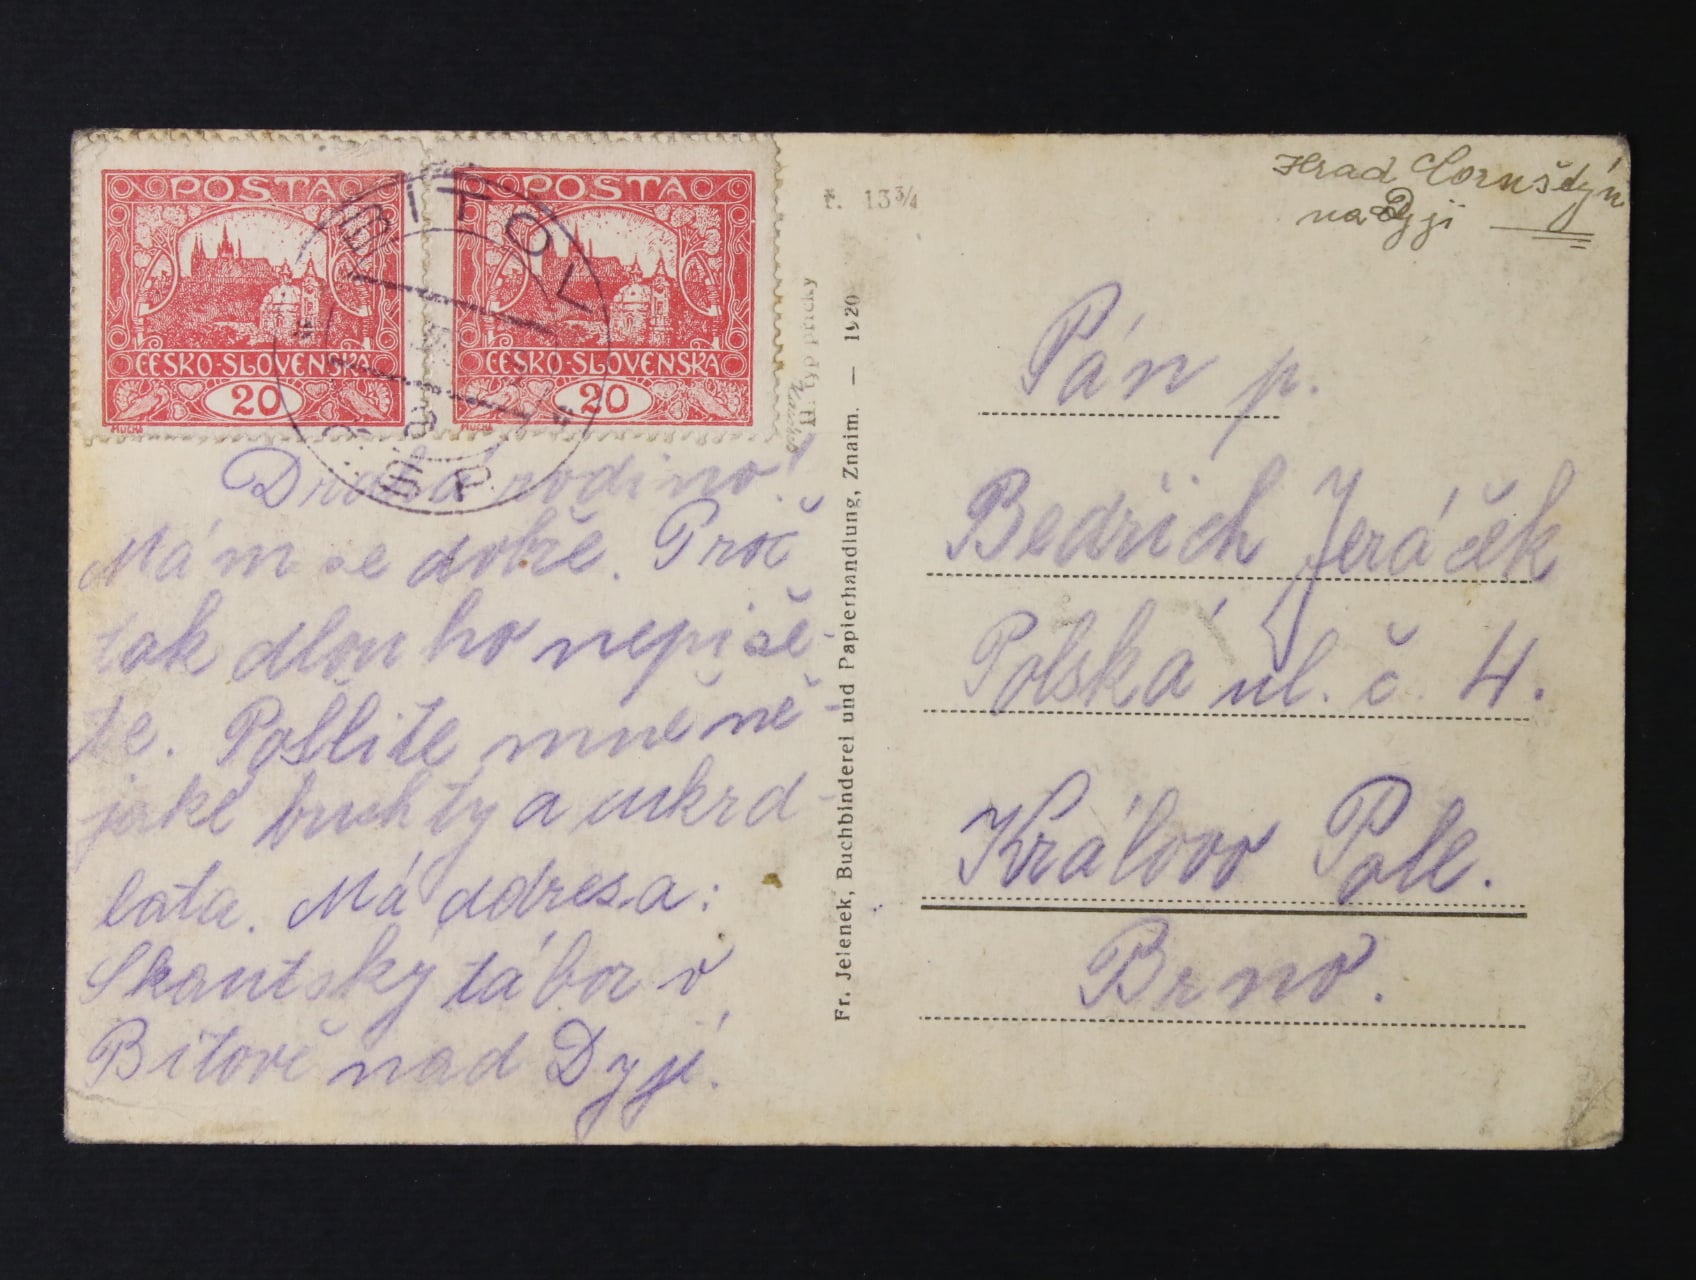 POSTA
ČESKO-SLOVENSKA
20
MUCHA
POSTA
ČESKO-SLOVENSKA
20
MUCHA
BITOV
Č.S.P.
a
Drahá rodino!
Mám se dobře. Proč
tak dlouho nepiše-
te. Pošlite mne ně-
jaké buchty a cukrd-
lata. Má addresa:
Skautský tábor v
Bítově nad Dyjí.
ř. 13¾
II. typ příčky
Fr. Jelenek, Buchbinderei und Papierhandlung, Znaim. — 1920
Hrad Cornštýn
na Dyji
Pán p.
Bedřich Jeráček
Polská ul. č. 4.
Královo Pole.
Brno.